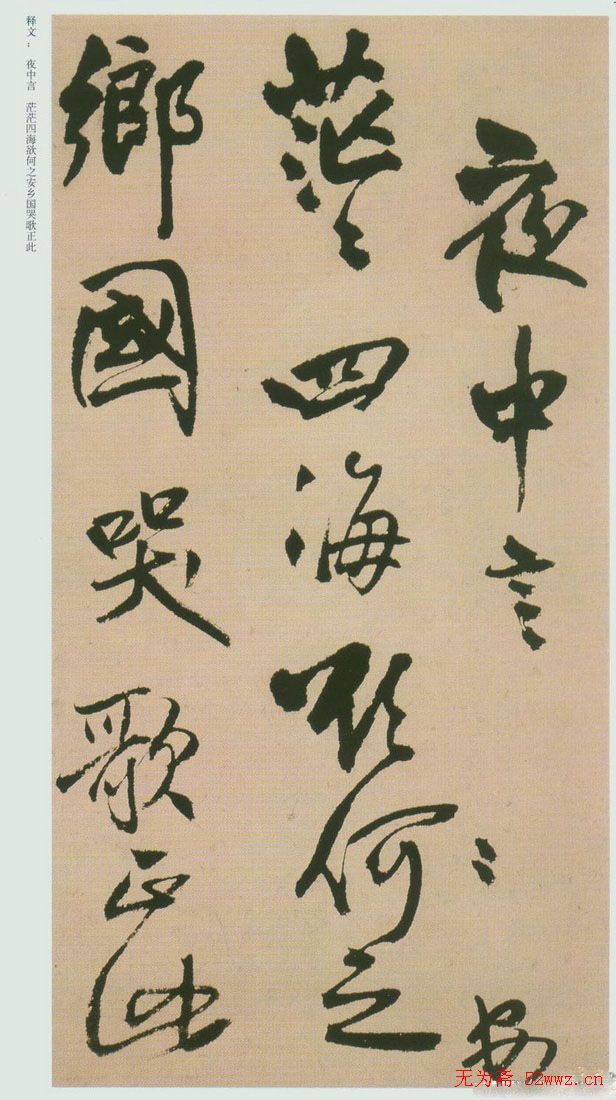 夜中言
安
茫〻四海欲何之
鄉國哭歌正此
释文： 夜中言 茫茫四海欲何之安乡国哭歌正此
无为斋 52wwz.cn